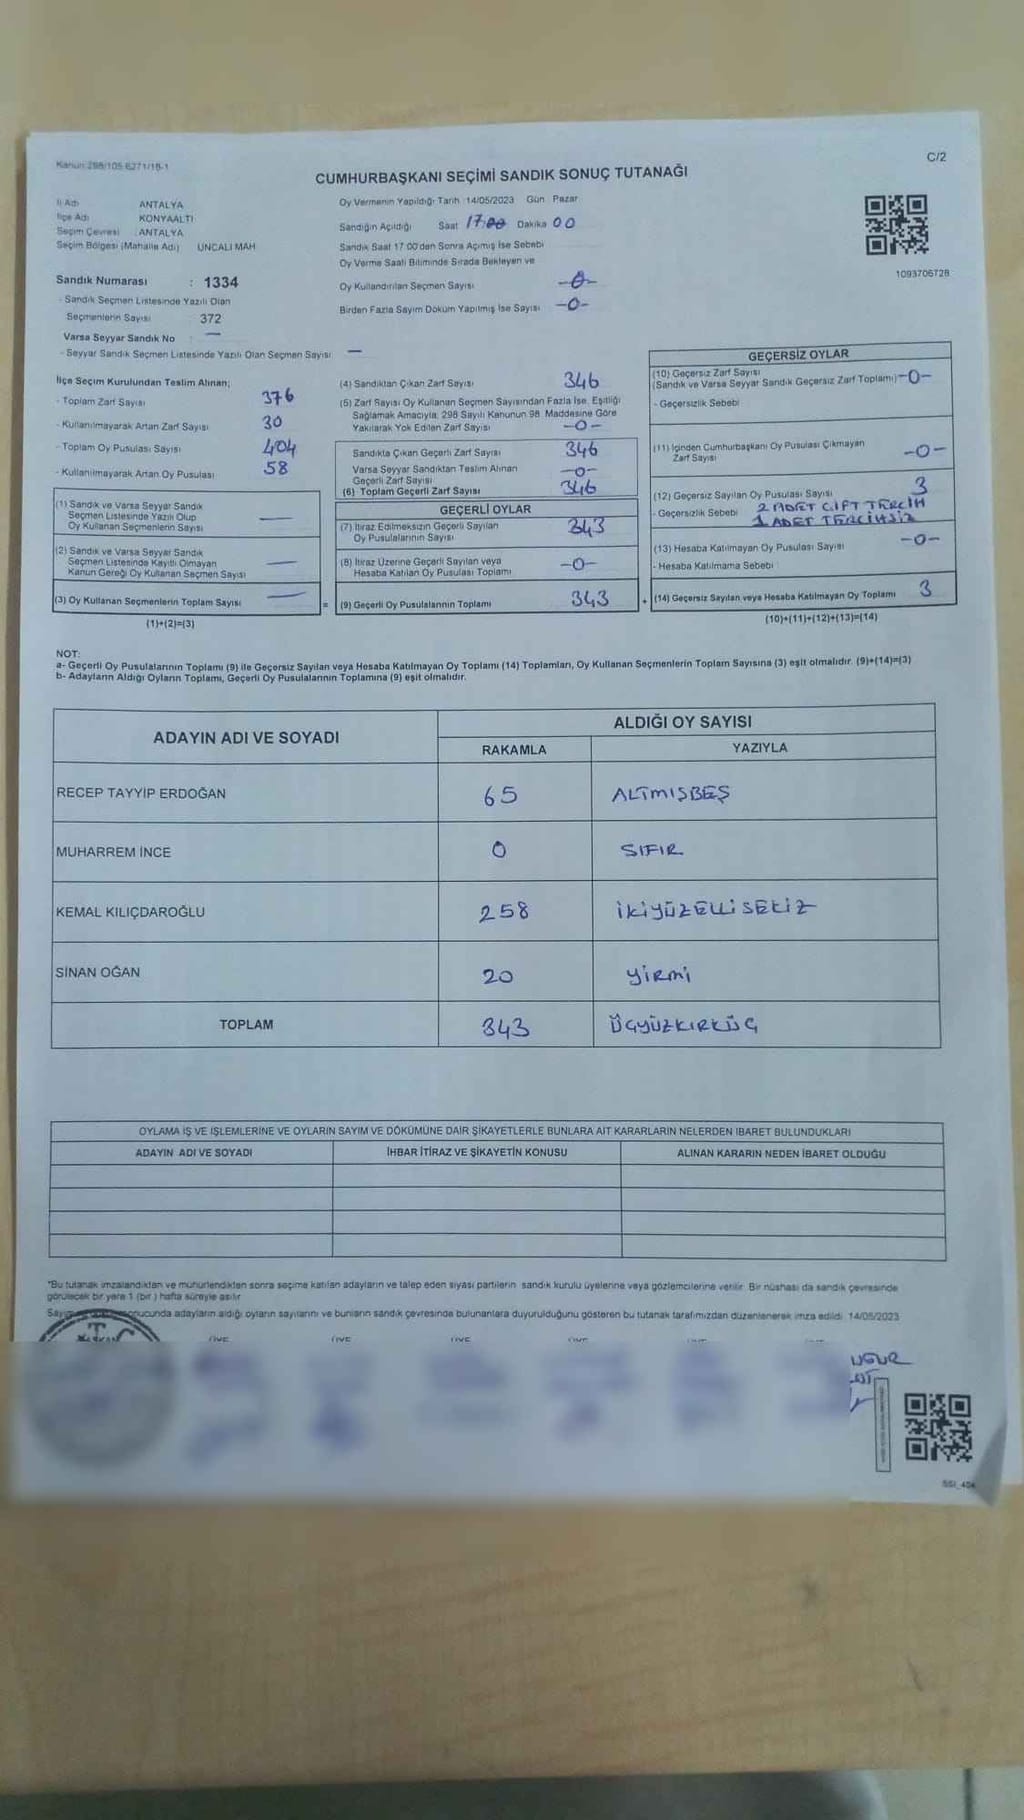 Kanun 298/105-6271/18-1
C/2
CUMHURBAŞKANI SEÇİMİ SANDIK SONUÇ TUTANAĞI
İl Adı ANTALYA
İlçe Adı KONYAALTI
Seçim Çevresi : ANTALYA
Seçim Bölgesi (Mahalle Adı) UNCALI MAH
Sandık Numarası : 1334
- Sandık Seçmen Listesinde Yazılı Olan
Seçmenlerin Sayısı 372
Varsa Seyyar Sandık No —
- Seyyar Sandık Seçmen Listesinde Yazılı Olan Seçmen Sayısı —
Oy Vermenin Yapıldığı Tarih 14/05/2023 Gün Pazar
Sandığın Açıldığı Saat 17:00 Dakika 00
Sandık Saat 17 00'den Sonra Açımış İse Sebebi
Oy Verme Saati Bitiminde Sırada Bekleyen ve
Oy Kullandırılan Seçmen Sayısı -0-
Birden Fazla Sayım Döküm Yapılmış İse Sayısı -0-
1093706728
İlçe Seçim Kurulundan Teslim Alınan;
- Toplam Zarf Sayısı 376
- Kullanılmayarak Artan Zarf Sayısı 30
- Toplam Oy Pusulası Sayısı 404
- Kullanılmayarak Artan Oy Pusulası 58
(1) Sandık ve Varsa Seyyar Sandık
Seçmen Listesinde Yazılı Olup
Oy Kullanan Seçmenlerin Sayısı —
(2) Sandık ve Varsa Seyyar Sandık
Seçmen Listesinde Kayıtlı Olmayan
Kanun Gereği Oy Kullanan Seçmen Sayısı —
(3) Oy Kullanan Seçmenlerin Toplam Sayısı —
(1)+(2)=(3)
(4) Sandıktan Çıkan Zarf Sayısı 346
(5) Zarf Sayısı Oy Kullanan Seçmen Sayısından Fazla İse, Eşitliği
Sağlamak Amacıyla, 298 Sayılı Kanunun 98. Maddesine Göre
Yakılarak Yok Edilen Zarf Sayısı -0-
Sandıkta Çıkan Geçerli Zarf Sayısı 346
Varsa Seyyar Sandıktan Teslim Alınan
Geçerli Zarf Sayısı -0-
(6) Toplam Geçerli Zarf Sayısı 346
GEÇERLİ OYLAR
(7) İtiraz Edilmeksizin Geçerli Sayılan
Oy Pusulalarının Sayısı 343
(8) İtiraz Üzerine Geçerli Sayılan veya
Hesaba Katılan Oy Pusulası Toplamı -0-
= (9) Geçerli Oy Pusulalarının Toplamı 343
GEÇERSİZ OYLAR
(10) Geçersiz Zarf Sayısı
(Sandık ve Varsa Seyyar Sandık Geçersiz Zarf Toplamı) -0-
- Geçersizlik Sebebi
(11) İçinden Cumhurbaşkanı Oy Pusulası Çıkmayan
Zarf Sayısı -0-
(12) Geçersiz Sayılan Oy Pusulası Sayısı 3
- Geçersizlik Sebebi 2 ADET ÇİFT TERCİH
1 ADET TERCİHSİZ
(13) Hesaba Katılmayan Oy Pusulası Sayısı -0-
- Hesaba Katılmama Sebebi
+ (14) Geçersiz Sayılan veya Hesaba Katılmayan Oy Toplamı 3
(10)+(11)+(12)+(13)=(14)
NOT:
a- Geçerli Oy Pusulalarının Toplamı (9) ile Geçersiz Sayılan veya Hesaba Katılmayan Oy Toplamı (14) Toplamları, Oy Kullanan Seçmenlerin Toplam Sayısına (3) eşit olmalıdır. (9)+(14)=(3)
b- Adayların Aldığı Oyların Toplamı, Geçerli Oy Pusulalarının Toplamına (9) eşit olmalıdır.
ADAYIN ADI VE SOYADI ALDIĞI OY SAYISI
RAKAMLA YAZIYLA
RECEP TAYYIP ERDOĞAN 65 ALTMIŞBEŞ
MUHARREM İNCE 0 SIFIR
KEMAL KILIÇDAROĞLU 258 İKİYÜZELLİSEKİZ
SİNAN OĞAN 20 YİRMİ
TOPLAM 343 ÜÇYÜZKIRKÜÇ
OYLAMA İŞ VE İŞLEMLERİNE VE OYLARIN SAYIM VE DÖKÜMÜNE DAİR ŞİKAYETLERLE BUNLARA AİT KARARLARIN NELERDEN İBARET BULUNDUKLARI
ADAYIN ADI VE SOYADI İHBAR İTİRAZ VE ŞİKAYETİN KONUSU ALINAN KARARIN NEDEN İBARET OLDUĞU
*Bu tutanak imzalandıktan ve mühürlendikten sonra seçime katılan adayların ve talep eden siyasi partilerin sandık kurulu üyelerine veya gözlemcilerine verilir. Bir nüshası da sandık çevresinde
görülecek bir yere 1 (bir) hafta süreyle asılır
sonucunda adayların aldığı oyların sayılarını ve bunların sandık çevresinde bulunanlara duyurulduğunu gösteren bu tutanak tarafımızdan düzenlenerek imza edildi. 14/05/2023
T C
UĞUR